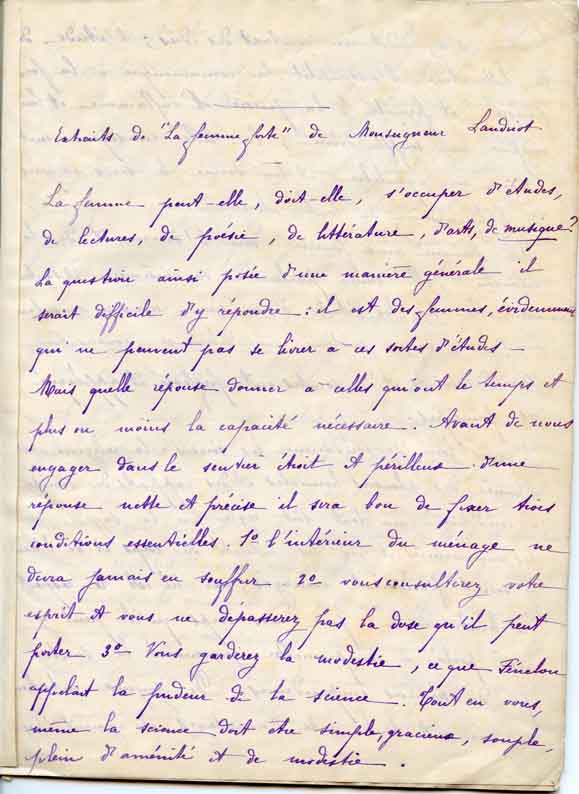 Extraits de "La femme forte" de Monseigneur Landriot
La femme peut-elle, doit-elle, s'occuper d'études,
de lectures, de poésie, de littérature, d'arts, de musique?
La question ainsi posée d'une manière générale il
serait difficile d'y répondre : il est des femmes, évidemment
qui ne peuvent pas se livrer à ces sortes d'études -
Mais quelle réponse donner à celles qui ont le temps et
plus ou moins la capacité nécessaire. Avant de nous
engager dans le sentier étroit et périlleux d'une
réponse nette et précise il sera bon de fixer trois
conditions essentielles. 1º L'intérieur du ménage ne
devra jamais en souffrir 2º vous consulterez votre
esprit et vous ne dépasserez pas la dose qu'il peut
porter 3º Vous garderez la modestie, ce que Fénelon
appelait la pudeur de la science. Tout en vous,
même la science doit être simple, gracieux, souple,
plein d'aménité et de modestie.